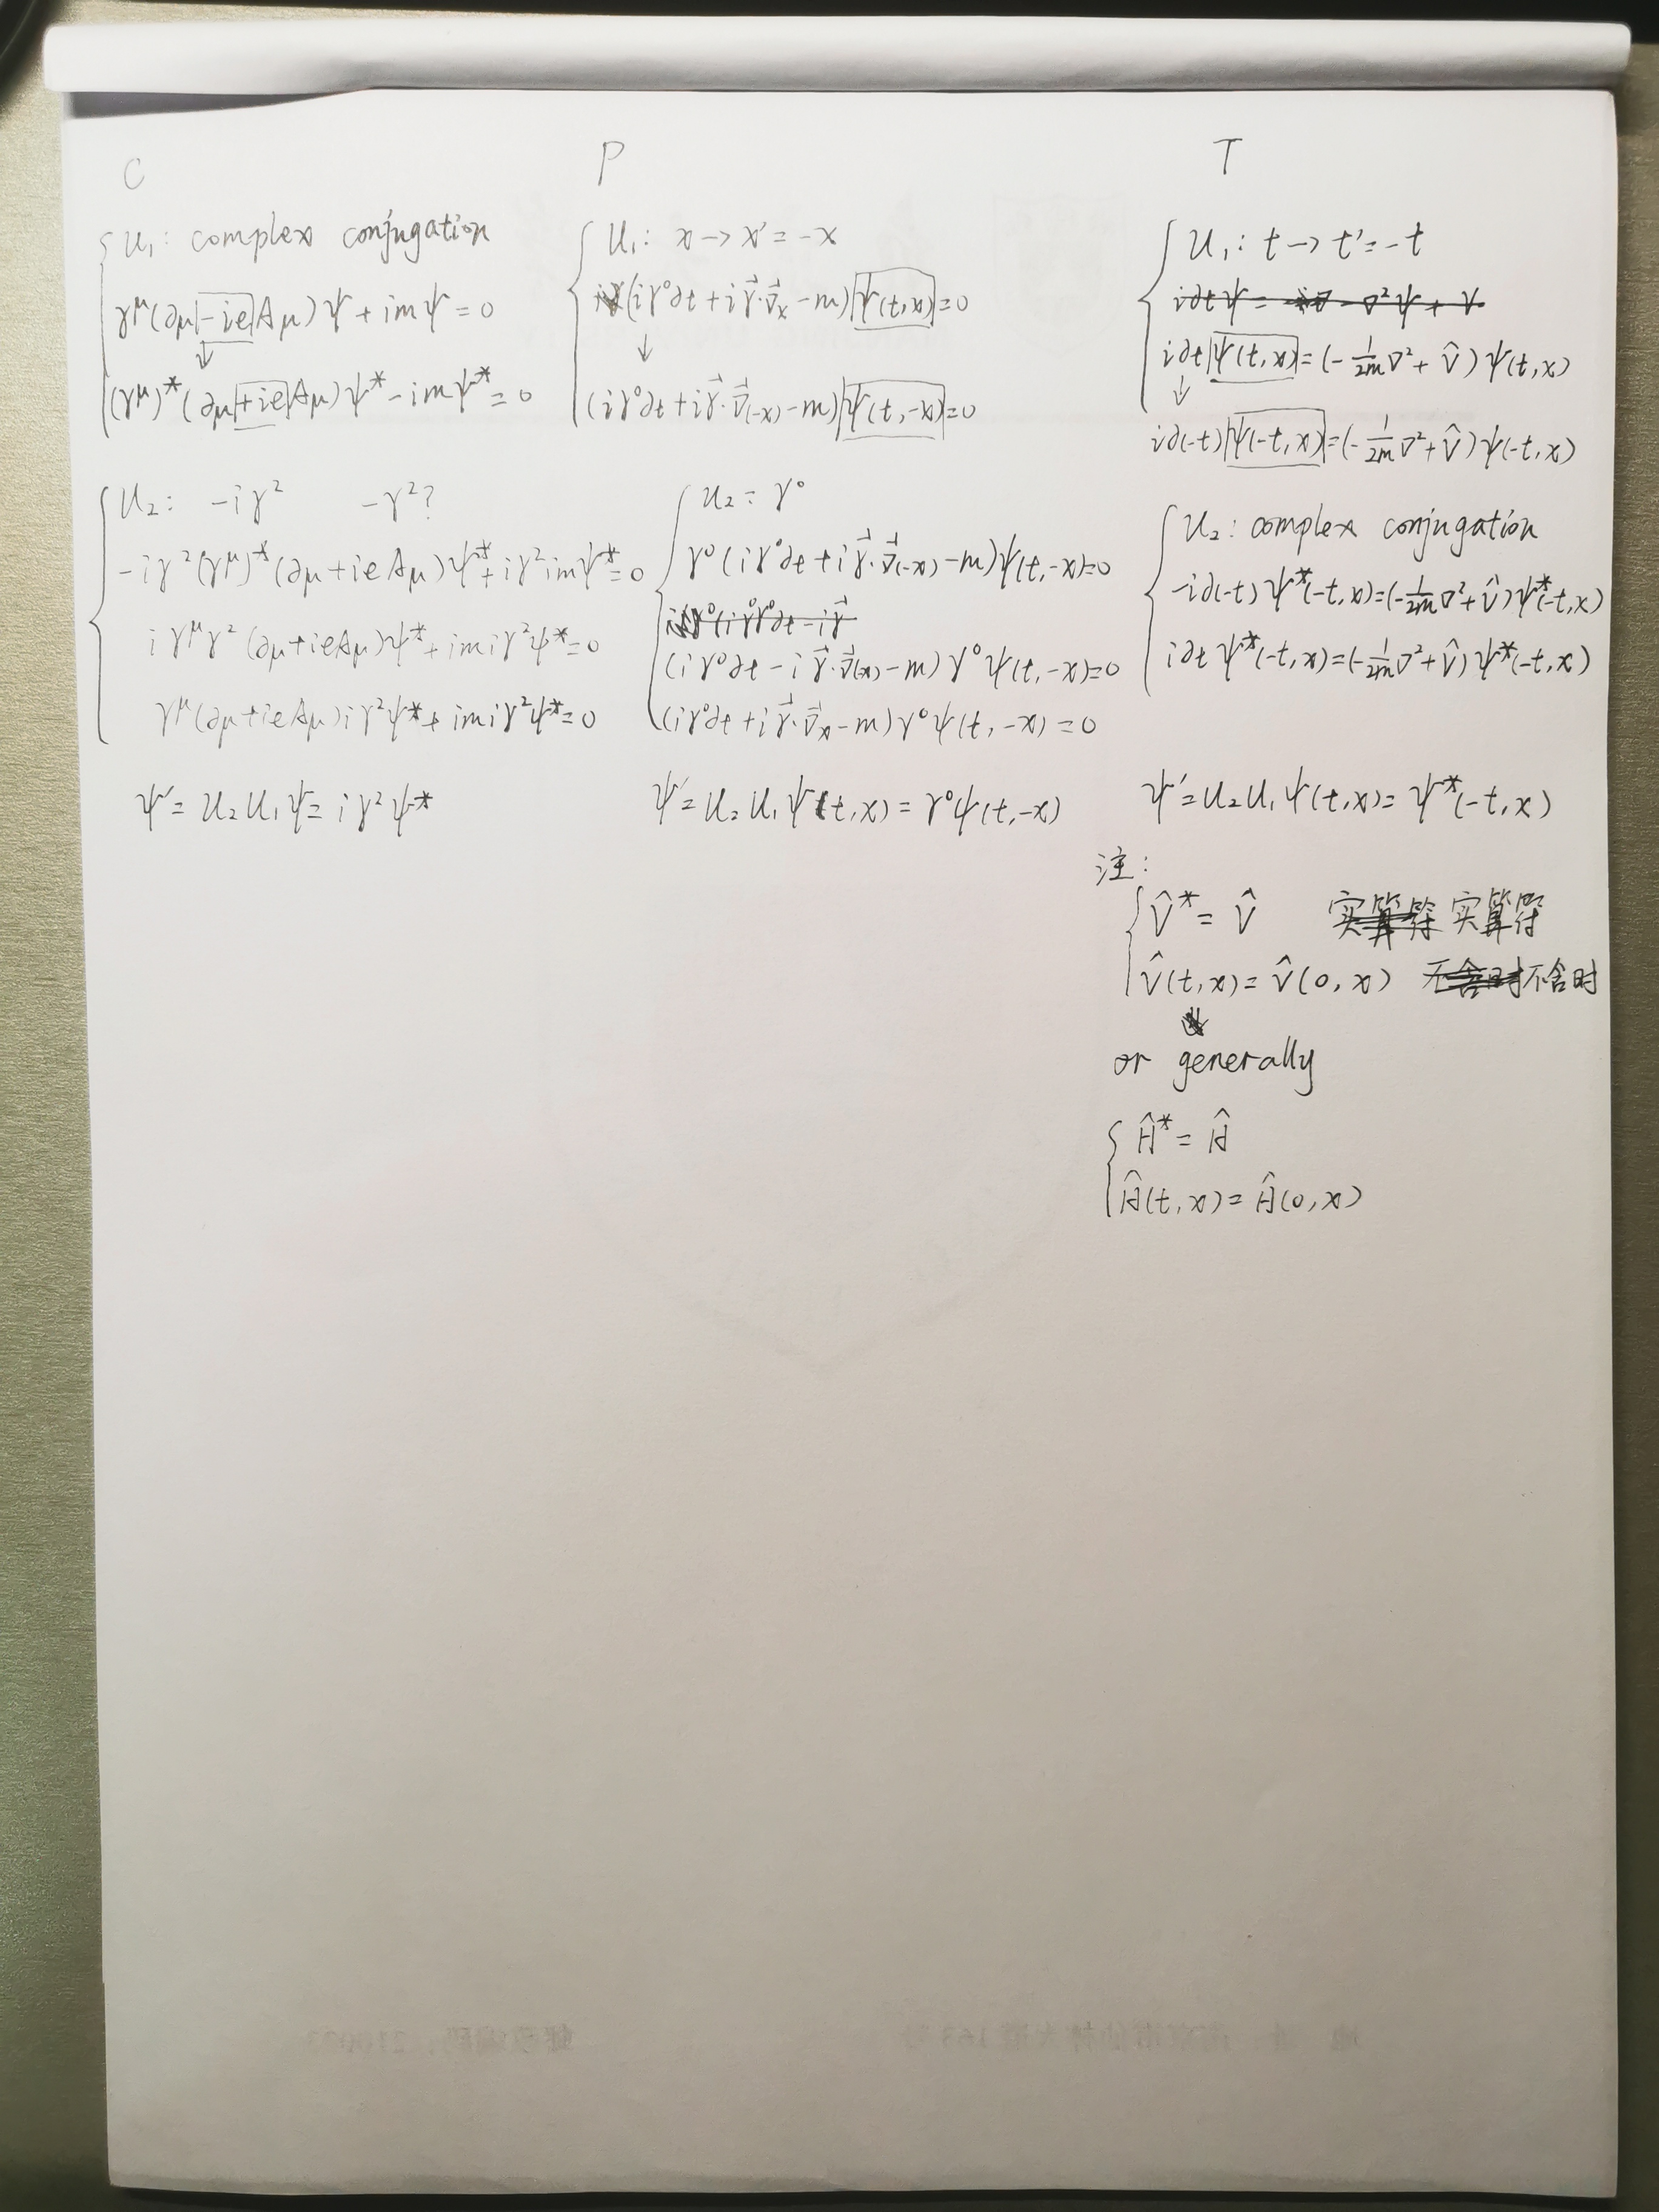 C
U₁: complex conjugation
γ^μ(∂μ -ieAμ)ψ + imψ = 0
↓
(γ^μ)*(∂μ +ieAμ)ψ* - imψ* = 0
U₂: -iγ² -γ²?
-iγ²(γ^μ)*(∂μ+ieAμ)ψ* + iγ²imψ* = 0
iγ^μγ²(∂μ+ieAμ)ψ* + imiγ²ψ* = 0
γ^μ(∂μ+ieAμ)iγ²ψ* + imiγ²ψ* = 0
ψ' = U₂U₁ψ = iγ²ψ*
P
U₁: x → x' = -x
(iγ⁰∂t + iγ⃗·∇⃗x - m)ψ(t,x) = 0
↓
(iγ⁰∂t + iγ⃗·∇⃗(-x) - m)ψ(t,-x) = 0
U₂ = γ⁰
γ⁰(iγ⁰∂t + iγ⃗·∇⃗(-x) - m)ψ(t,-x) = 0
(iγ⁰∂t - iγ⃗·∇⃗(-x) - m)γ⁰ψ(t,-x) = 0
(iγ⁰∂t + iγ⃗·∇⃗x - m)γ⁰ψ(t,-x) = 0
ψ' = U₂U₁ψ(t,x) = γ⁰ψ(t,-x)
T
U₁: t → t' = -t
i∂tψ(t,x) = (-1/2m ∇² + V̂)ψ(t,x)
↓
i∂(-t)ψ(-t,x) = (-1/2m ∇² + V̂)ψ(-t,x)
U₂: complex conjugation
-i∂(-t)ψ*(-t,x) = (-1/2m ∇² + V̂)ψ*(-t,x)
i∂tψ*(-t,x) = (-1/2m ∇² + V̂)ψ*(-t,x)
ψ' = U₂U₁ψ(t,x) = ψ*(-t,x)
注:
V̂* = V̂ 实算符
V̂(t,x) = V̂(0,x) 不含时
or generally
Ĥ* = Ĥ
Ĥ(t,x) = Ĥ(0,x)